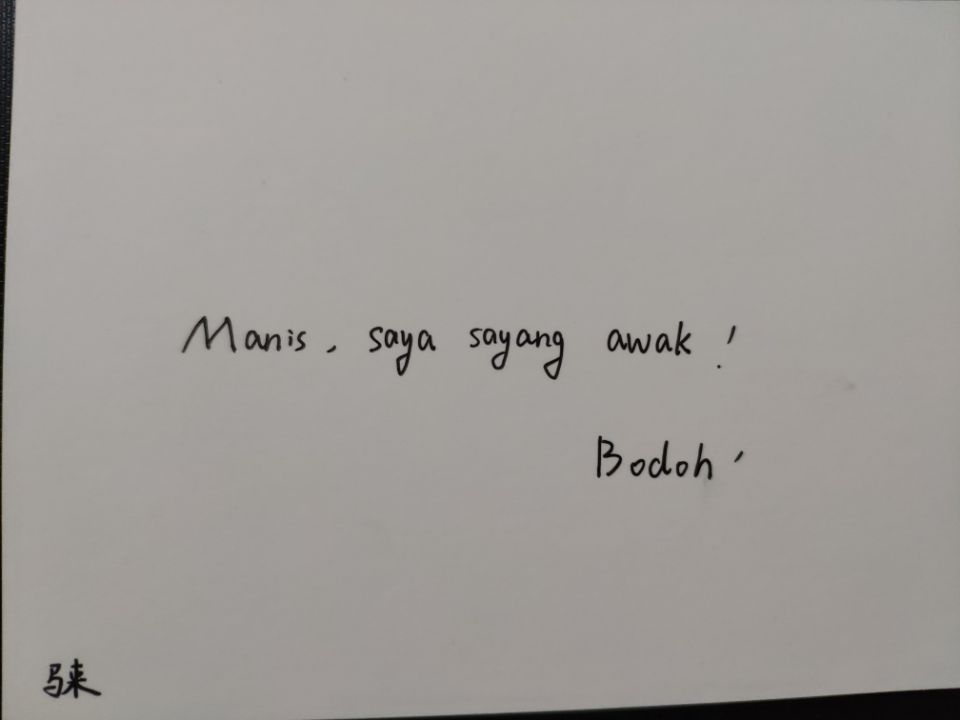 Manis, saya sayang awak!
Bodoh'
马来